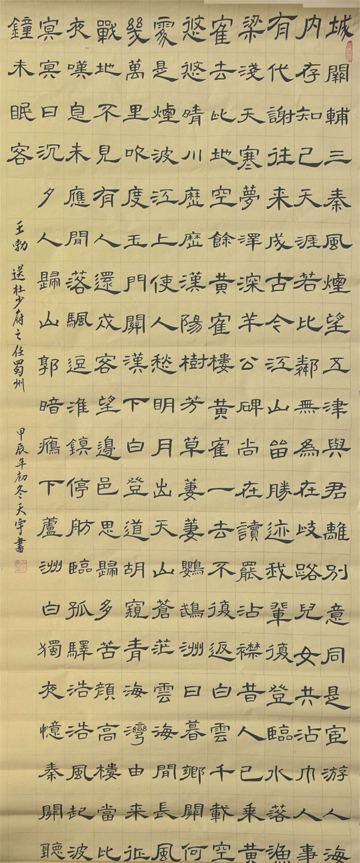 城闕輔三秦風煙望五津與君離別意同是宦游人海
内存知己天涯若比鄰無為在歧路兒女共沾巾人事
有代謝往來成古今江山留勝迹我輩復登臨水落漁
梁淺天寒夢澤深羊公碑尚在讀罷沾襟昔人已乘黄
隺去此地空餘黄隺樓黄隺一去不復返白雲千載空
悠悠晴川歷歷漢陽樹芳草萋萋鸚鵡洲日暮鄉關何
處是煙波江上使人愁明月出天山蒼茫雲海間長風
幾萬里吹度玉門關漢下白登道胡窺青海灣由來征
戰地不見有人還戍客望邊邑思歸多苦顏高樓當此
夜嘆息未應閒落颿逗淮鎮停舫臨孤驛浩浩風起波
冥冥日沉夕人歸山郭暗鴈下蘆洲白獨夜憶秦關聽
鐘未眠客
王勃 送杜少府之任蜀州
甲辰年初冬天宇書